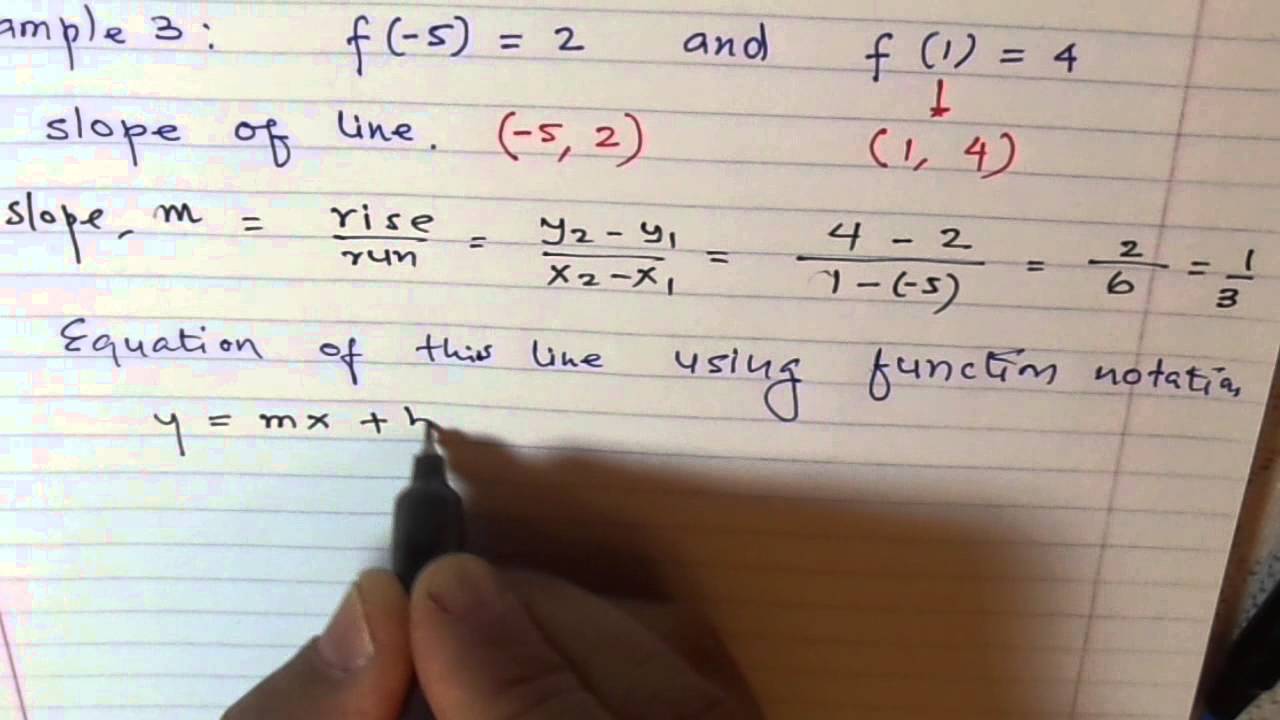 ample 3: f(-5) = 2 and f(1) = 4
↓
slope of line. (-5, 2) (1, 4)
slope, m = rise/run = y₂ - y₁/x₂ - x₁ = 4 - 2/1 - (-5) = 2/6 = 1/3
Equation of this line using function notation,
y = mx +